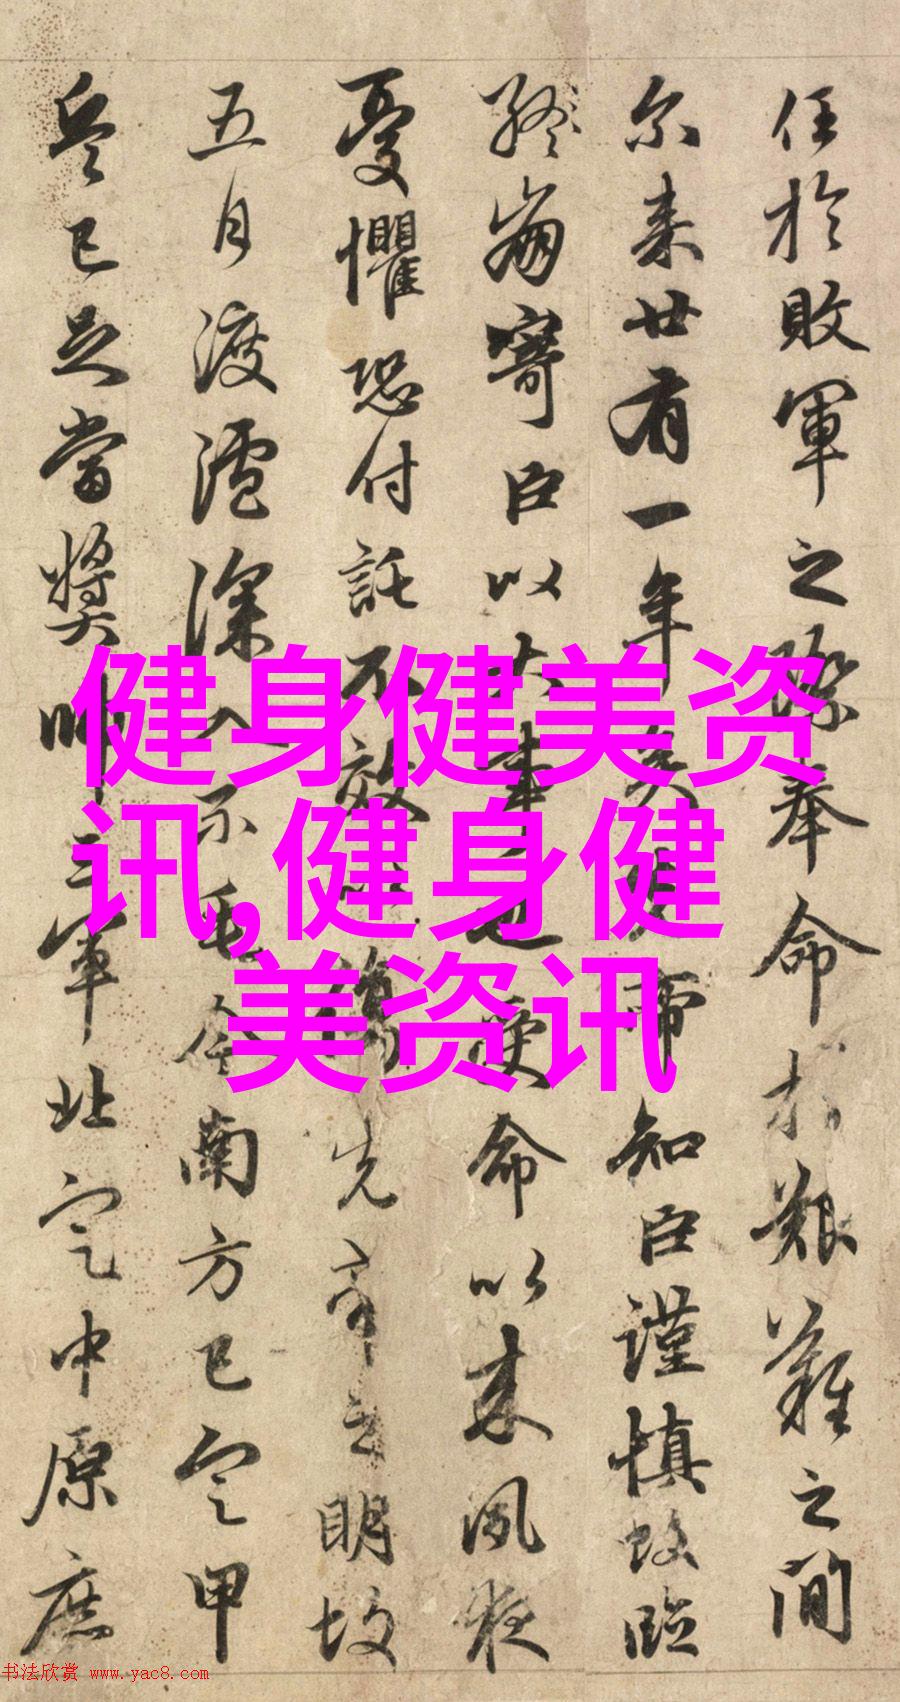 任於敗軍之際奉命於艱難之間
尓来廿有一年矣先帝知臣謹慎故臨
終崩寄臣以大事也受命以来夙夜
憂懼恐付託不效以傷先帝之明故
五月渡瀘深入不毛今南方已定甲
兵已足當獎帥三軍北定中原庶
健身健美资
讯,健身健
美资讯
书法欣赏 www.yac8.com